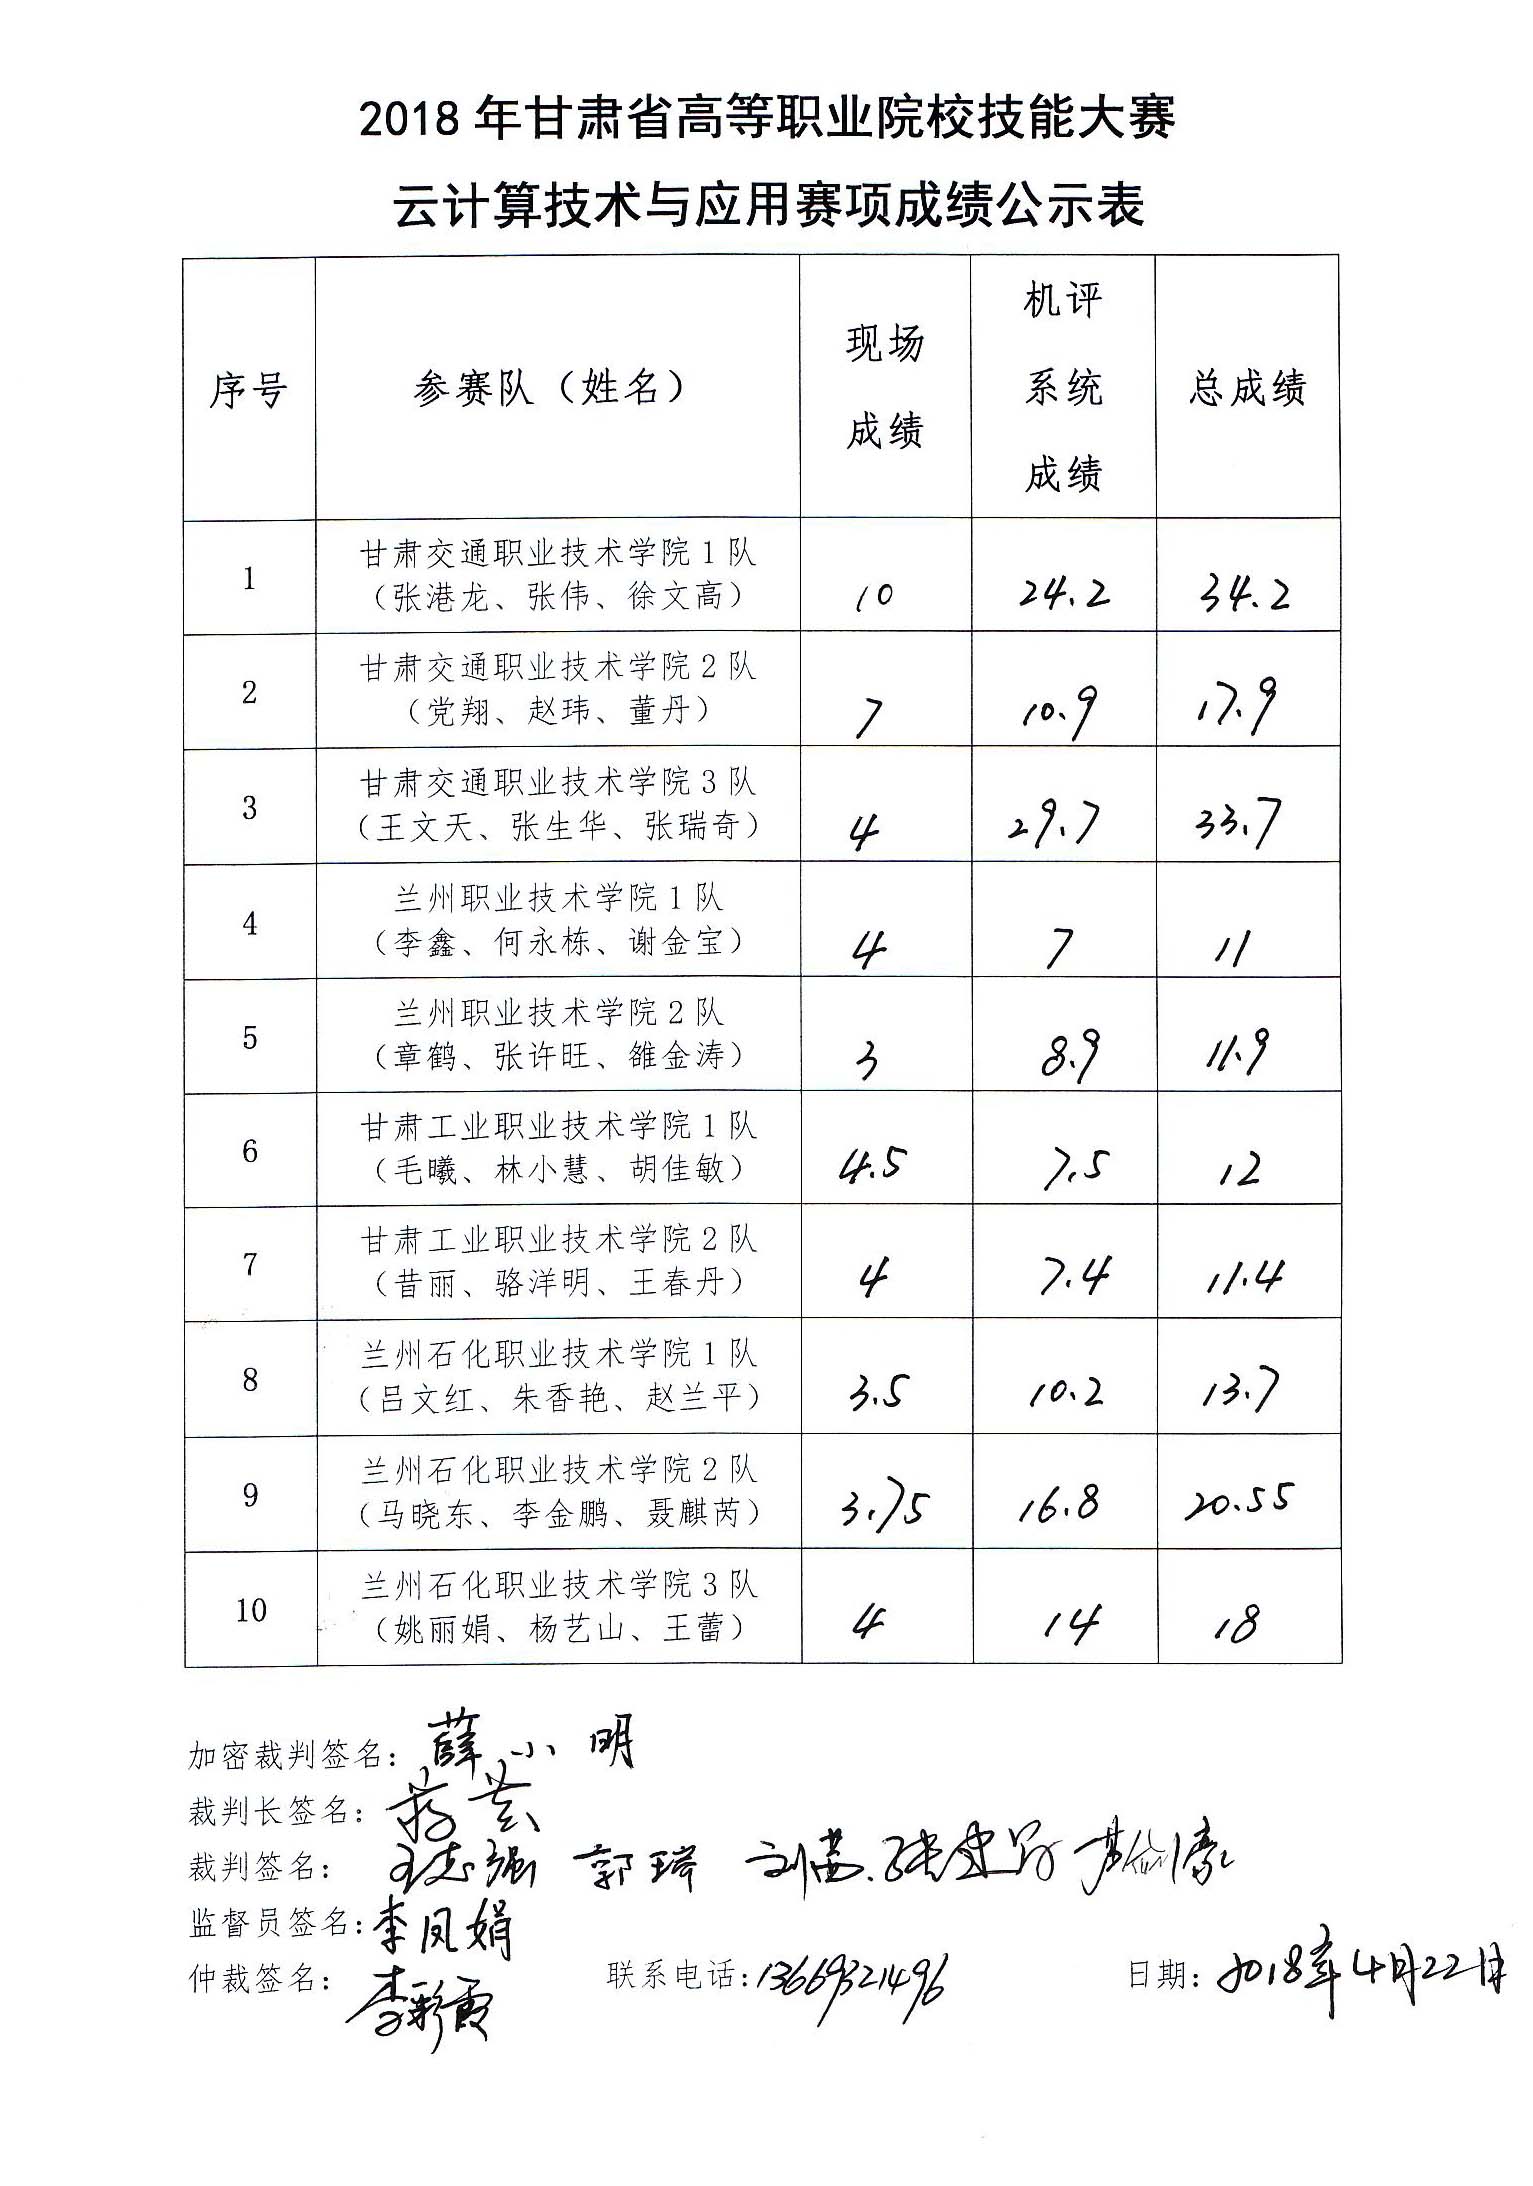 2018年甘肃省高等职业院校技能大赛
云计算技术与应用赛项成绩公示表
序号 参赛队（姓名） 现场成绩 机评系统成绩 总成绩
1 甘肃交通职业技术学院1队 10 24.2 34.2
（张港龙、张伟、徐文高）
2 甘肃交通职业技术学院2队 7 10.9 17.9
（党翔、赵玮、董丹）
3 甘肃交通职业技术学院3队 4 29.7 33.7
（王文天、张生华、张瑞奇）
4 兰州职业技术学院1队 4 7 11
（李鑫、何永栋、谢金宝）
5 兰州职业技术学院2队 3 8.9 11.9
（章鹤、张许旺、雒金涛）
6 甘肃工业职业技术学院1队 4.5 7.5 12
（毛曦、林小慧、胡佳敏）
7 甘肃工业职业技术学院2队 4 7.4 11.4
（昔丽、骆洋明、王春丹）
8 兰州石化职业技术学院1队 3.5 10.2 13.7
（吕文红、朱香艳、赵兰平）
9 兰州石化职业技术学院2队 3.75 16.8 20.55
（马晓东、李金鹏、聂麒芮）
10 兰州石化职业技术学院3队 4 14 18
（姚丽娟、杨艺山、王蕾）
加密裁判签名：薛小明
裁判长签名：
裁判签名：王志强 郭瑞
监督员签名：李凤娟
仲裁签名：李彩霞 联系电话：13669321496 日期：2018年4月22日